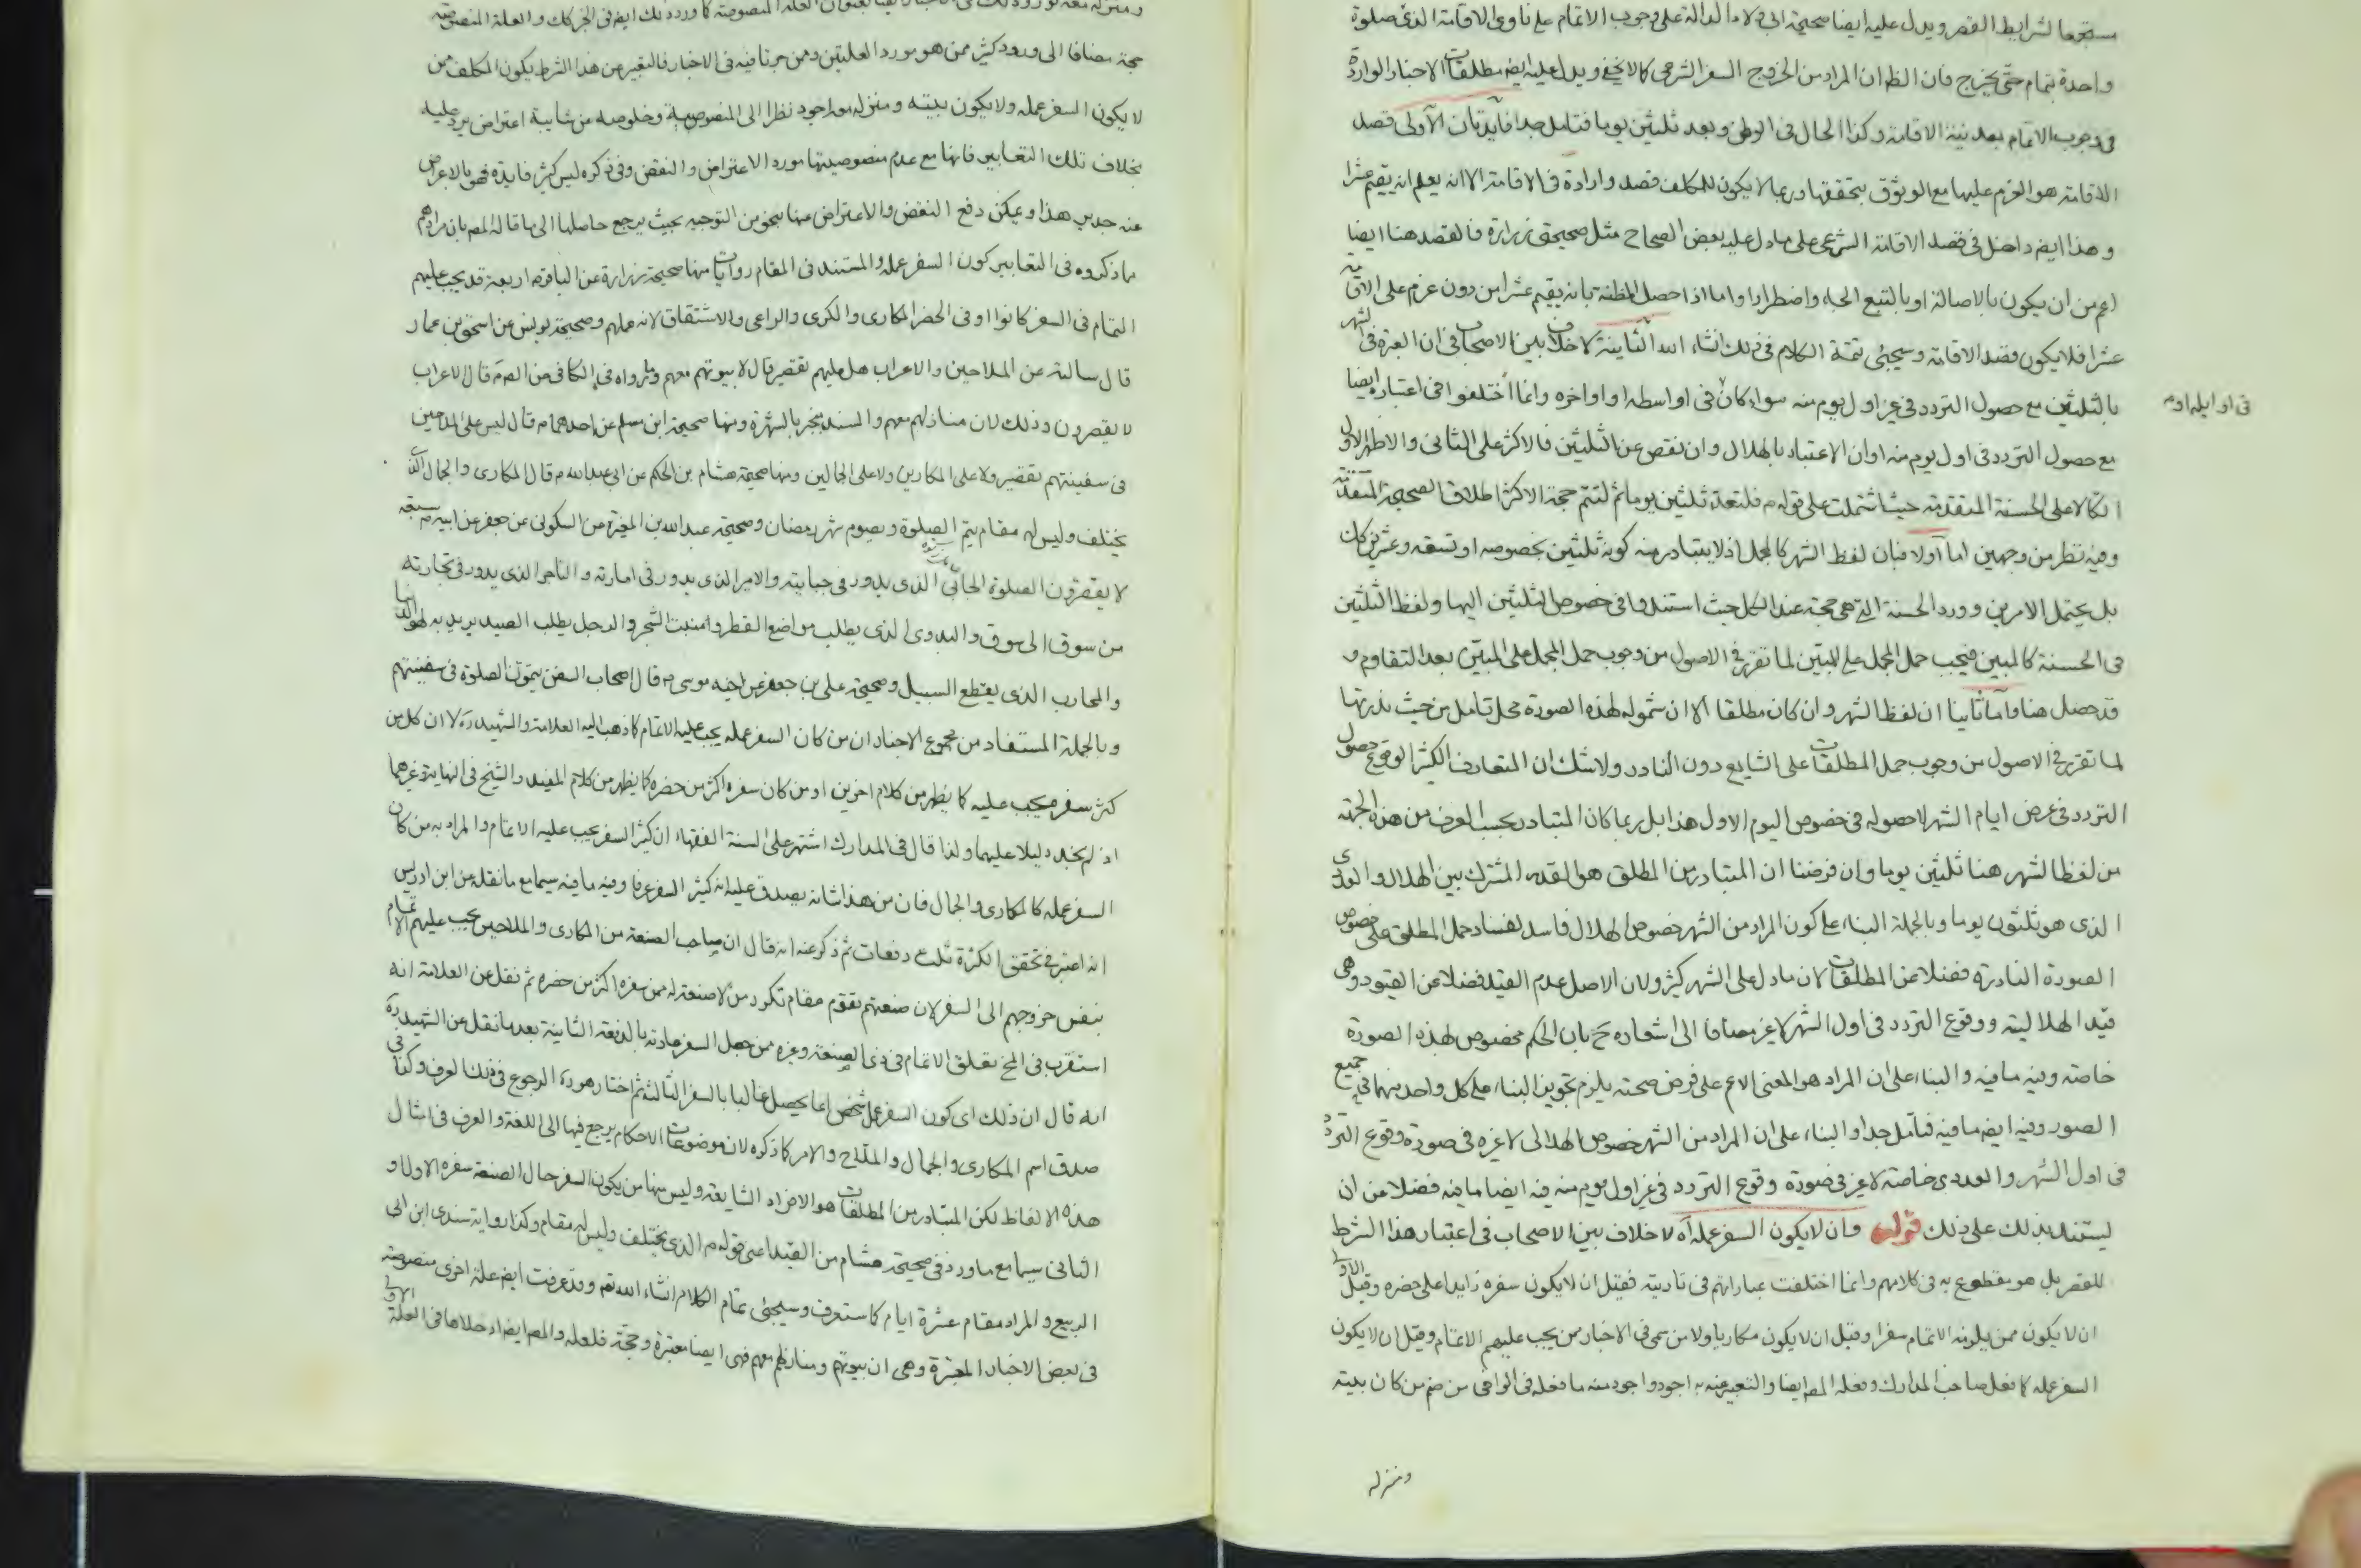 مستجمعا لشرايط القصر ويدل عليه ايضا صحيحة ابي ولاد الدالة على وجوب الاتمام على ناوى الاقامة الذى صلى صلوة
واحدة بتمام حتى يخرج فان الظ ان المراد من الخروج السفر الشرعى كما لا يخفى ويدل عليه ايضه مطلقات الاخبار الواردة
فى وجوب الاتمام بعد نية الاقامة وكذا الحال فى الوطن وبعد ثلثين يوما فتامل جدا فايدتان الاولى قصد
الاقامة هو العزم عليها مع الوثوق بتحققها وربما لا يكون للمكلف قصد وارادة فى الاقامة الا انه يعلم انه يقيم عشرا
وهذا ايضه داخل فى قصد الاقامة الشرعى على ما دل عليه بعض الصحاح مثل صحيحتى زرارة فالقصد هنا ايضا
اعم من ان يكون بالاصالة او بالتبع الجاء واضطرارا واما اذا حصل المظنة بانه يقيم عشرا من دون عزم على الاقامة
عشرا فلا يكون قصد الاقامة وسيجئ تتمة الكلام فى ذلك انشاء الله الثانية لا خلاف بين الاصحاب فى ان العبرة فى الشهر
بالثلثين مع حصول التردد فى غير اول يوم منه سواء كان فى اواسطه او اواخره وانما اختلفوا فى اعتباره ايضا
فى اوايله اوم
مع حصول التردد فى اول يوم منه او ان الاعتبار بالهلال وان نقص عن الثلثين فالاكثر على الثانى والاظهر الاول
اتكالا على الحسنة المتقدمة حيث اشتملت على قوله م فلتعد ثلثين يوما ثم لتتم حجة الاكثر اطلاق الصحيحة المتقدمة
وفيه نظر من وجهين اما اولا فبان لفظ الشهر كالمجمل اذ لا يتبادر منه كونه ثلثين بخصوصه او تسعة وعشرين كك
بل يحتمل الامرين وورد الحسنة التى هى حجة عند الكل حيث استندوا فى خصوص الثلثين اليها ولفظ الثلثين
فى الحسنة كالمبين فيجب حمل المجمل على المبين لما تقرر فى الاصول من وجوب حمل المجمل على المبين بعد التقاوم و
قد حصل هنا واما ثانيا ان لفظ الشهر وان كان مطلقا الا ان شموله لهذه الصورة محل تامل من حيث ندرتها
لما تقرر فى الاصول من وجوب حمل المطلقات على الشايع دون النادر ولا شك ان المتعارف الكثير الوقوع حصول
التردد فى عرض ايام الشهر لا حصوله فى خصوص اليوم الاول هذا بل ربما كان المتبادر بحسب العرف من هذه الجهة
من لفظ الشهر هنا ثلثين يوما وان فرضنا ان المتبادر من المطلق هو القدر المشترك بين الهلال والعددى
الذى هو ثلثون يوما وبالجملة البناء على كون المراد من الشهر خصوص الهلال فاسد لفساد حمل المطلق على خصوص
الصورة النادرة فضلا عن المطلقات لان ما دل على الشهر كثير ولان الاصل عدم القيد فضلا عن القيود وهى
قيد الهلالية ووقوع التردد فى اول الشهر لا غير مضافا الى اشعاره ح بان الحكم مخصوص لهذه الصورة
خاصة وفيه ما فيه والبناء على ان المراد هو المعنى الاعم على فرض صحته يلزم تجويز البناء على كل واحد منهما فى جميع
الصور وفيه ايضه ما فيه فتامل جدا والبناء على ان المراد من الشهر خصوص الهلالى لا غير فى صورة وقوع التردد
فى اول الشهر والعددى خاصة لا غير فى صورة وقوع التردد فى غير اول يوم منه فيه ايضا ما فيه فضلا من ان
يستند بذلك على ذلك قوله وان لا يكون السفر عمله آه لا خلاف بين الاصحاب فى اعتبار هذا الشرط
للقصر بل هو مقطوع به فى كلامهم وانما اختلفت عباراتهم فى تاديته فقيل ان لا يكون سفره زايدا على حضره وقيل الاولى
ان لا يكون ممن يلزمه الاتمام سفرا وقيل ان لا يكون مكاريا ولا من سمى فى الاخبار ممن يجب عليهم الاتمام وقيل ان لا يكون
السفر عمله كما فعله صاحب المدارك وفعله المصه ايضا والتعبير عنه به اجود واجود منه ما فعله فى الوافى من ضم من كان بيته
ومنزله
حجة مضافا الى ورود كثير ممن هو مورد العلتين ومن جرتا فيه فى الاخبار فالتعبير عن هذا الشرط بكون المكلف ممن
لا يكون السفر عمله ولا يكون بيته ومنزله معه اجود نظرا الى المنصوصية وخلوصه من شايبة اعتراض يرد عليه
بخلاف تلك التعابير فانها مع عدم منصوصيتها مورد الاعتراض والنقض وفى ذكره ليس كثير فايدة فهو بالاعراض
عنه جدير هذا ويمكن دفع النقض والاعتراض عنها بنحو من التوجيه بحيث يرجع حاصلها الى ما قاله المصه بان مرادهم
ما ذكروه فى التعابير كون السفر عمله والمستند فى المقام روايات منها صحيحة زرارة عن الباقر م اربعة قد يجب عليهم
التمام فى السفر كانوا او فى الحضر المكارى والكرى والراعى والاشتقاق لانه عملهم وصحيحة يونس عن اسحق بن عمار
قال سالته عن الملاحين والاعراب هل عليهم تقصير قال لا بيوتهم معهم وما رواه فى الكافى عن الصه م قال الاعراب
لا يقصرون وذلك لان منازلهم معهم والسند ينجبر بالشهرة ومنها صحيحة ابن مسلم عن احدهما م قال ليس على الملاحين
فى سفينتهم تقصير ولا على المكارين ولا على الجمالين ومنها صحيحة هشام بن الحكم عن ابى عبد الله م قال المكارى والجمال الذى
يختلف وليس له مقام يتم الصلوة ويصوم شهر رمضان وصحيحة عبد الله بن المغيرة عن السكونى عن جعفر عن ابيه م سبعة
لا يقصرون الصلوة الجابى الذى يدور فى جبايته والامير الذى يدور فى امارته والتاجر الذى يدور فى تجارته
من سوق الى سوق والبدوى الذى يطلب مواضع القطر ومنبت الشجر والرجل يطلب الصيد يريد به لهو الدنيا
والمحارب الذى يقطع السبيل وصحيحة على بن جعفر عن اخيه موسى م قال اصحاب السفن يتمون الصلوة فى سفينتهم
وبالجملة المستفاد من مجموع الاخبار ان من كان السفر عمله يجب عليه الاتمام كما ذهب اليه العلامة والشهيد ره لا ان كل من
كثر سفره يجب عليه كما يظهر من كلام اخرين او من كان سفره اكثر من حضره كما يظهر من كلام المفيد والشيخ فى النهاية وغيرهما
اذ لم نجد دليلا عليهما ولذا قال فى المدارك اشتهر على السنة الفقهاء ان كثير السفر يجب عليه الاتمام والمراد به من كان
السفر عمله كالمكارى والجمال فان من هذا شانه يصدق عليه انه كثير السفر عرفا وفيه ما فيه سيما مع ما نقله عن ابن ادريس
انه اعتبر فى تحقق الكثرة ثلث دفعات ثم ذكر عنه انه قال ان صاحب الصنعة من المكارى والملاحين يجب عليهم الاتمام
بنفس خروجهم الى السفر لان صنعتهم تقوم مقام تكرر من لا صنعة له ممن سفره اكثر من حضره ثم نقل عن العلامة انه
استقرب فى المخ تعلق الاتمام فى ذى الصنعة وغيره ممن جعل السفر عادته بالدفعة الثانية بعد ما نقل عن الشهيد ره
انه قال ان ذلك اى كون السفر عمل شخص انما يحصل غالبا بالسفرة الثالثة ثم اختار هو ره الرجوع فى ذلك العرف وكذا فى
صدق اسم المكارى والجمال والملاح والامر كما ذكره لان موضوعات الاحكام يرجع فيها الى اللغة والعرف فى امثال
هذه الالفاظ لكن المتبادر من المطلقات هو الافراد الشايعة وليس منها من يكون السفر حال الصنعة سفره الاول او
الثانى سيما مع ما ورد فى صحيحة هشام من القيد اعنى قوله م الذى يختلف وليس له مقام وكذا رواية سندى ابن ابى
الربيع والمراد مقام عشرة ايام كما ستعرف وسيجئ تمام الكلام انشاء الله تعه وقد عرفت ايضه علة اخرى منصوصة
فى بعض الاخبار المعتبرة وهى ان بيوتهم ومنازلهم معهم فهى ايضا معتبرة وحجة فلعله والمصه ايضه ادخلاها فى العلة الاولى